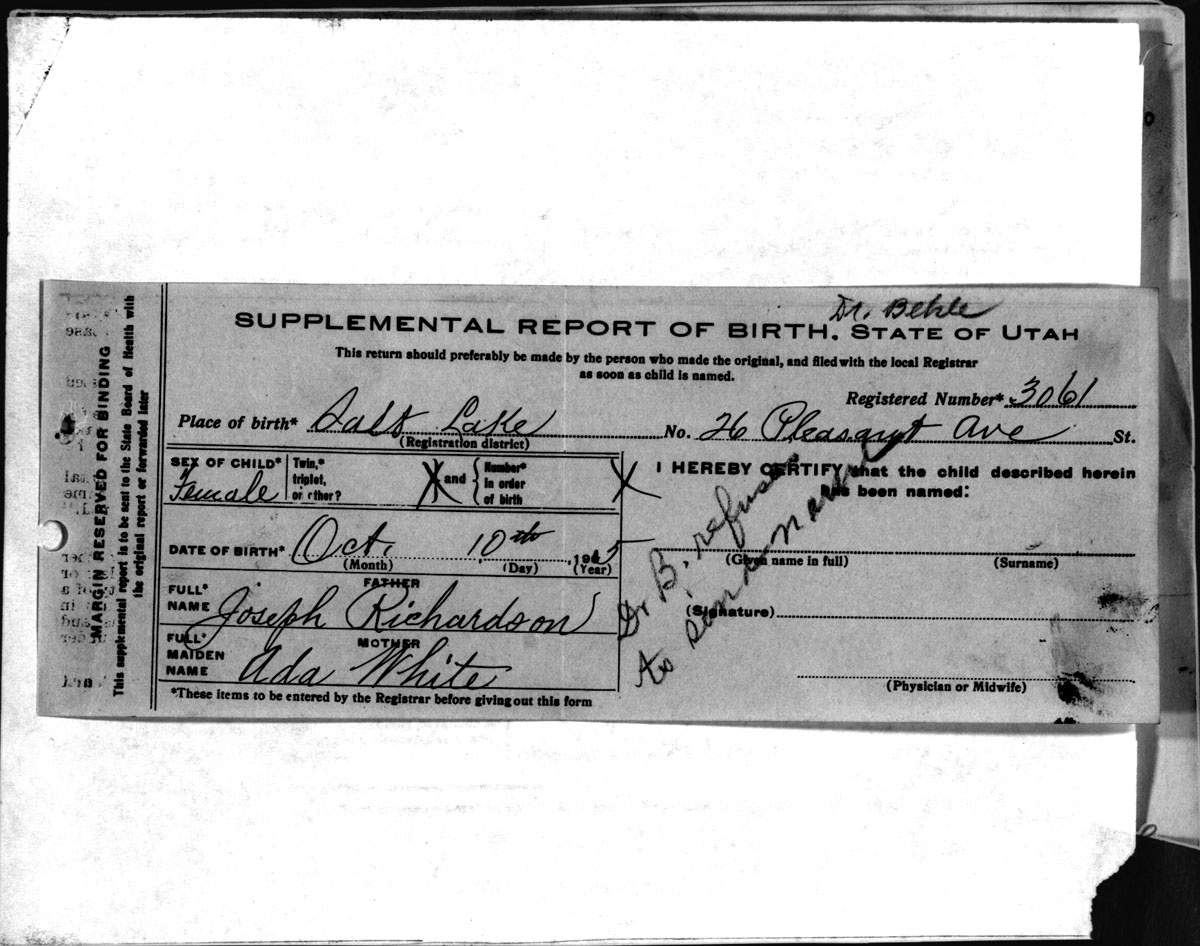 Dr. Behle
SUPPLEMENTAL REPORT OF BIRTH. STATE OF UTAH
This return should preferably be made by the person who made the original, and filed with the local Registrar
as soon as child is named.
Registered Number* 3061
Place of birth* Salt Lake No. 26 Pleasant Ave St.
(Registration district)
SEX OF CHILD* Female
Twin,* triplet, or other? X and { Number* in order of birth X
I HEREBY CERTIFY that the child described herein
has been named:
DATE OF BIRTH* Oct. 10th, 1915
(Month) (Day) (Year)
(Given name in full) (Surname)
FATHER
FULL* NAME Joseph Richardson
(Signature)
MOTHER
FULL* MAIDEN NAME Ada White
(Physician or Midwife)
*These items to be entered by the Registrar before giving out this form
Dr B. refuses
to send name
MARGIN RESERVED FOR BINDING
This supplemental report is to be sent to the State Board of Health with
the original report or forwarded later